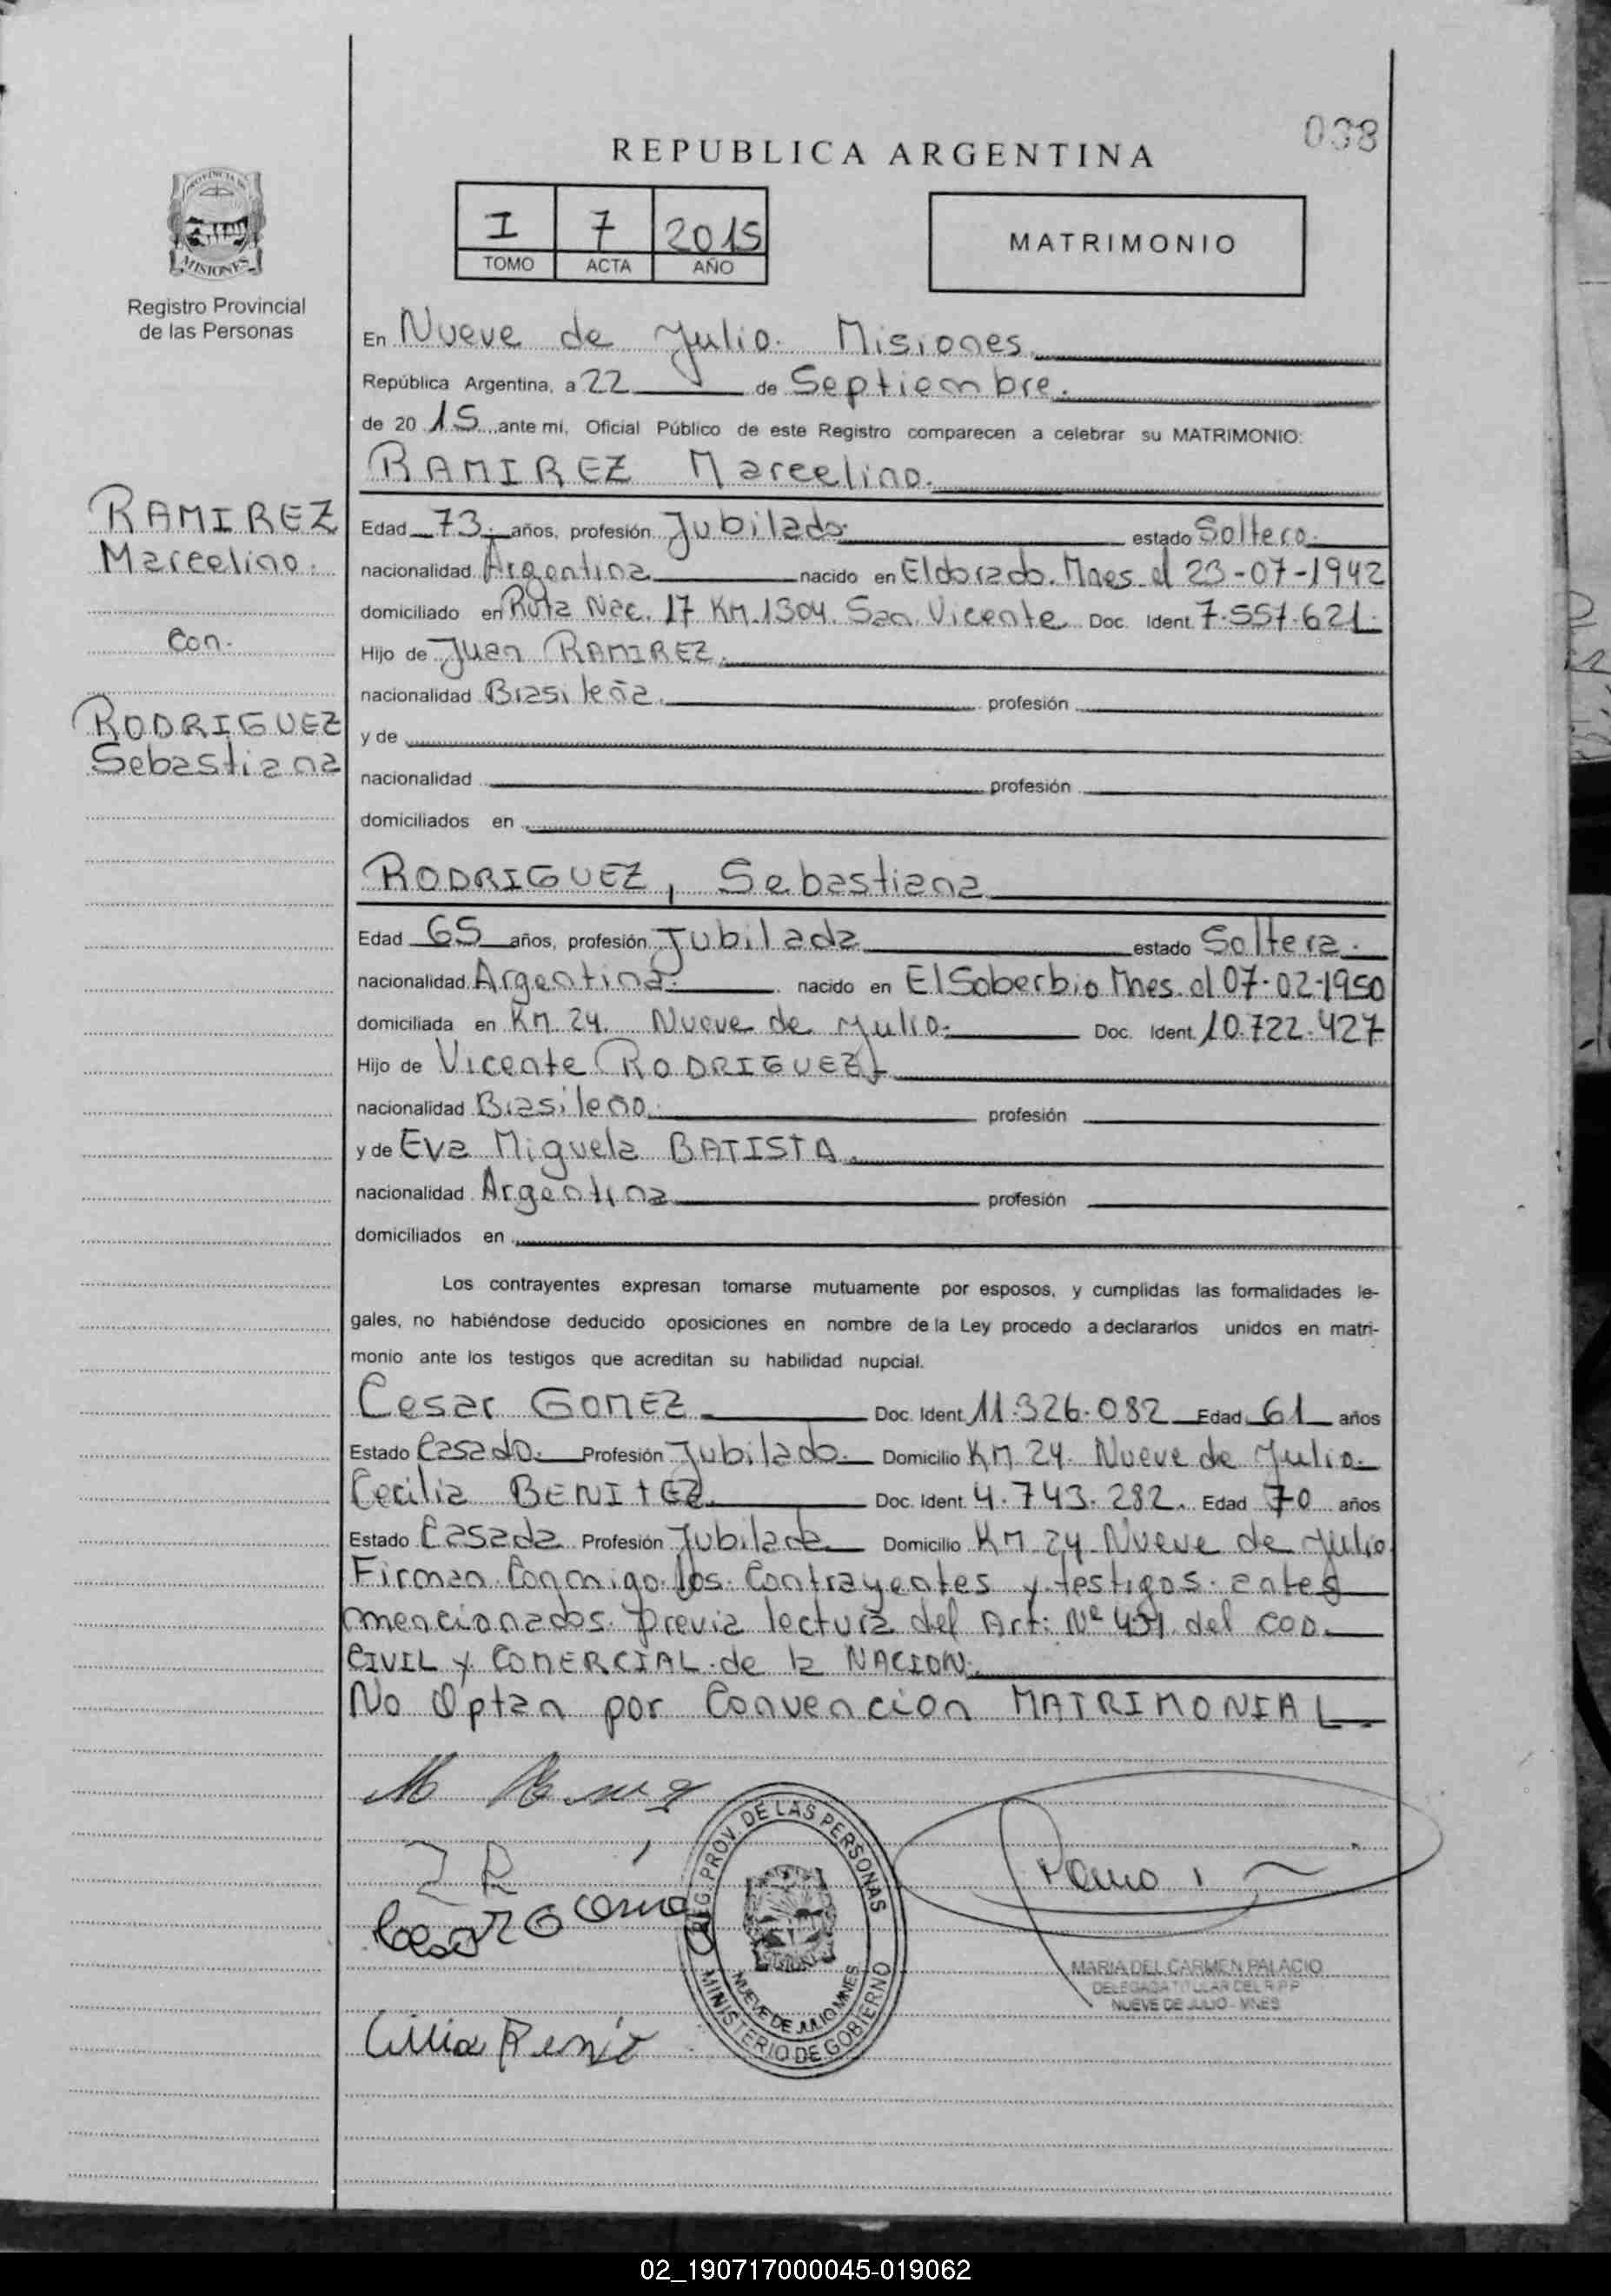 038
REPUBLICA ARGENTINA
I 7 2015
TOMO ACTA AÑO
MATRIMONIO
PROVINCIA DE
MISIONES
Registro Provincial
de las Personas
RAMIREZ
Marcelino.
Con.
RODRIGUEZ
Sebastiana
En Nueve de Julio. Misiones
República Argentina, a 22 de Septiembre.
de 20 15 ante mi, Oficial Público de este Registro comparecen a celebrar su MATRIMONIO:
RAMIREZ Marcelino.
Edad 73. años, profesión Jubilado. estado Soltero.
nacionalidad Argentina nacido en Eldorado. Mnes. el 23-07-1942
domiciliado en Ruta Nac. 17 KM.1304. San Vicente Doc. Ident. 7.557.621.
Hijo de Juan RAMIREZ.
nacionalidad Brasileña. profesión
y de
nacionalidad profesión
domiciliados en
RODRIGUEZ, Sebastiana
Edad 65 años, profesión Jubilada estado Soltera.
nacionalidad Argentina. nacido en El Soberbio Mnes. el 07-02-1950
domiciliada en KM. 24. Nueve de Julio. Doc. Ident. 10.722.427
Hijo de Vicente RODRIGUEZ
nacionalidad Brasileño. profesión
y de Eva Miguela BATISTA.
nacionalidad Argentina profesión
domiciliados en
Los contrayentes expresan tomarse mutuamente por esposos, y cumplidas las formalidades le-
gales, no habiéndose deducido oposiciones en nombre de la Ley procedo a declararlos unidos en matri-
monio ante los testigos que acreditan su habilidad nupcial.
Cesar GOMEZ Doc. Ident. 11.326.082 Edad 61 años
Estado Casado. Profesión Jubilado. Domicilio KM 24. Nueve de Julio.
Cecilia BENITEZ Doc. Ident. 4.743.282. Edad 70 años
Estado Casada Profesión Jubilada Domicilio KM 24 Nueve de Julio
Firman Conmigo los Contrayentes y testigos antes
mencionados. previa lectura del Art: Nº 431 del COD.
CIVIL Y COMERCIAL de la NACION.
No Optan por Convencion MATRIMONIAL.
REG. PROV. DE LAS PERSONAS
MINISTERIO DE GOBIERNO
NUEVE DE JULIO MNES
MARIA DEL CARMEN PALACIO
DELEGADA TITULAR DEL R.P.P
NUEVE DE JULIO - MNES
02_190717000045-019062